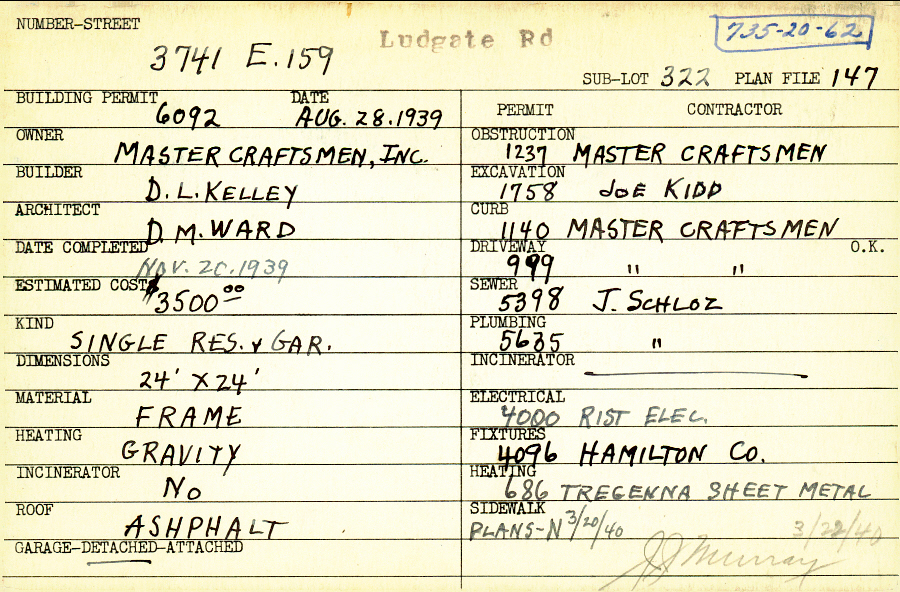 NUMBER-STREET
3741 E. 159
Ludgate Rd
735-20-62
SUB-LOT 322 PLAN FILE 147
BUILDING PERMIT 6092 DATE AUG. 28. 1939
OWNER MASTER CRAFTSMEN, INC.
BUILDER D. L. KELLEY
ARCHITECT D. M. WARD
DATE COMPLETED NOV. 20. 1939
ESTIMATED COST $3500 00
KIND SINGLE RES. & GAR.
DIMENSIONS 24' X 24'
MATERIAL FRAME
HEATING GRAVITY
INCINERATOR NO
ROOF ASHPHALT
GARAGE-DETACHED-ATTACHED
PERMIT CONTRACTOR
OBSTRUCTION 1237 MASTER CRAFTSMEN
EXCAVATION 1758 JOE KIDD
CURB 1140 MASTER CRAFTSMEN
DRIVEWAY 999 " " O.K.
SEWER 5398 J. SCHLOZ
PLUMBING 5635 "
INCINERATOR
ELECTRICAL 4000 RIST ELEC.
FIXTURES 4096 HAMILTON CO.
HEATING 686 TREGENNA SHEET METAL
SIDEWALK
PLANS-N 3/20/40 3/22/40
JJ Murray